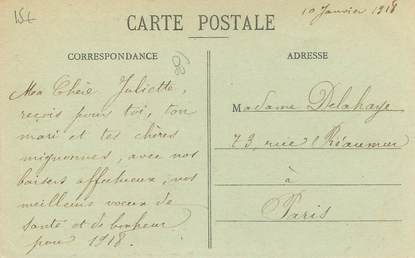 15€
10 Janvier 1918
CARTE POSTALE
CORRESPONDANCE
68
ADRESSE
Ma Chère Juliette,
reçois pour toi, ton
mari et tes chères
mignonnes, avec nos
baisers affectueux, nos
meilleurs voeux de
santé et de bonheur
pour 1918.
Madame Delahaye
73, rue Réaumur
à
Paris